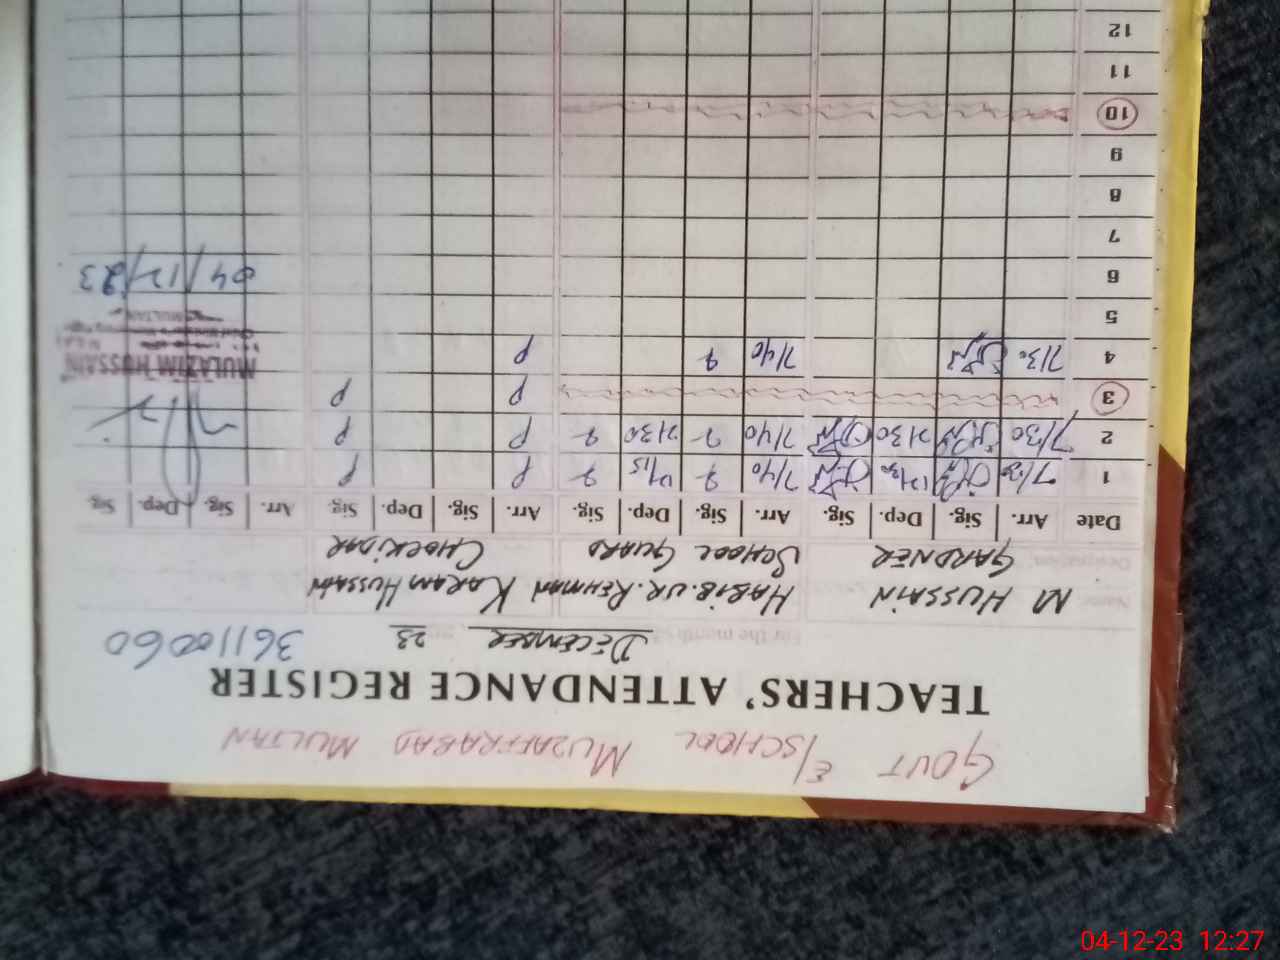 GOVT E/SCHOOL MUZAFFRABAD MULTAN
TEACHERS' ATTENDANCE REGISTER
For the month of DECEMBER 23 36110060
Name M HUSSAIN HABIB.UR.REHMAN KARAM HUSSAIN
Designation GARDNER SCHOOL GUARD CHOCKIDAR
Date Arr. Sig. Dep. Sig. Arr. Sig. Dep. Sig. Arr. Sig. Dep. Sig. Arr. Sig. Dep. Sig.
1 7/30 12/30 7/40 12/15 P P
2 7/30 2/30 7/40 2/30 P P
3 P P
4 7/30 7/40 P
MULAZIM HUSSAIN
MULTAN
5
04/12/23
6
7
8
9
10
11
12
04-12-23 12:27